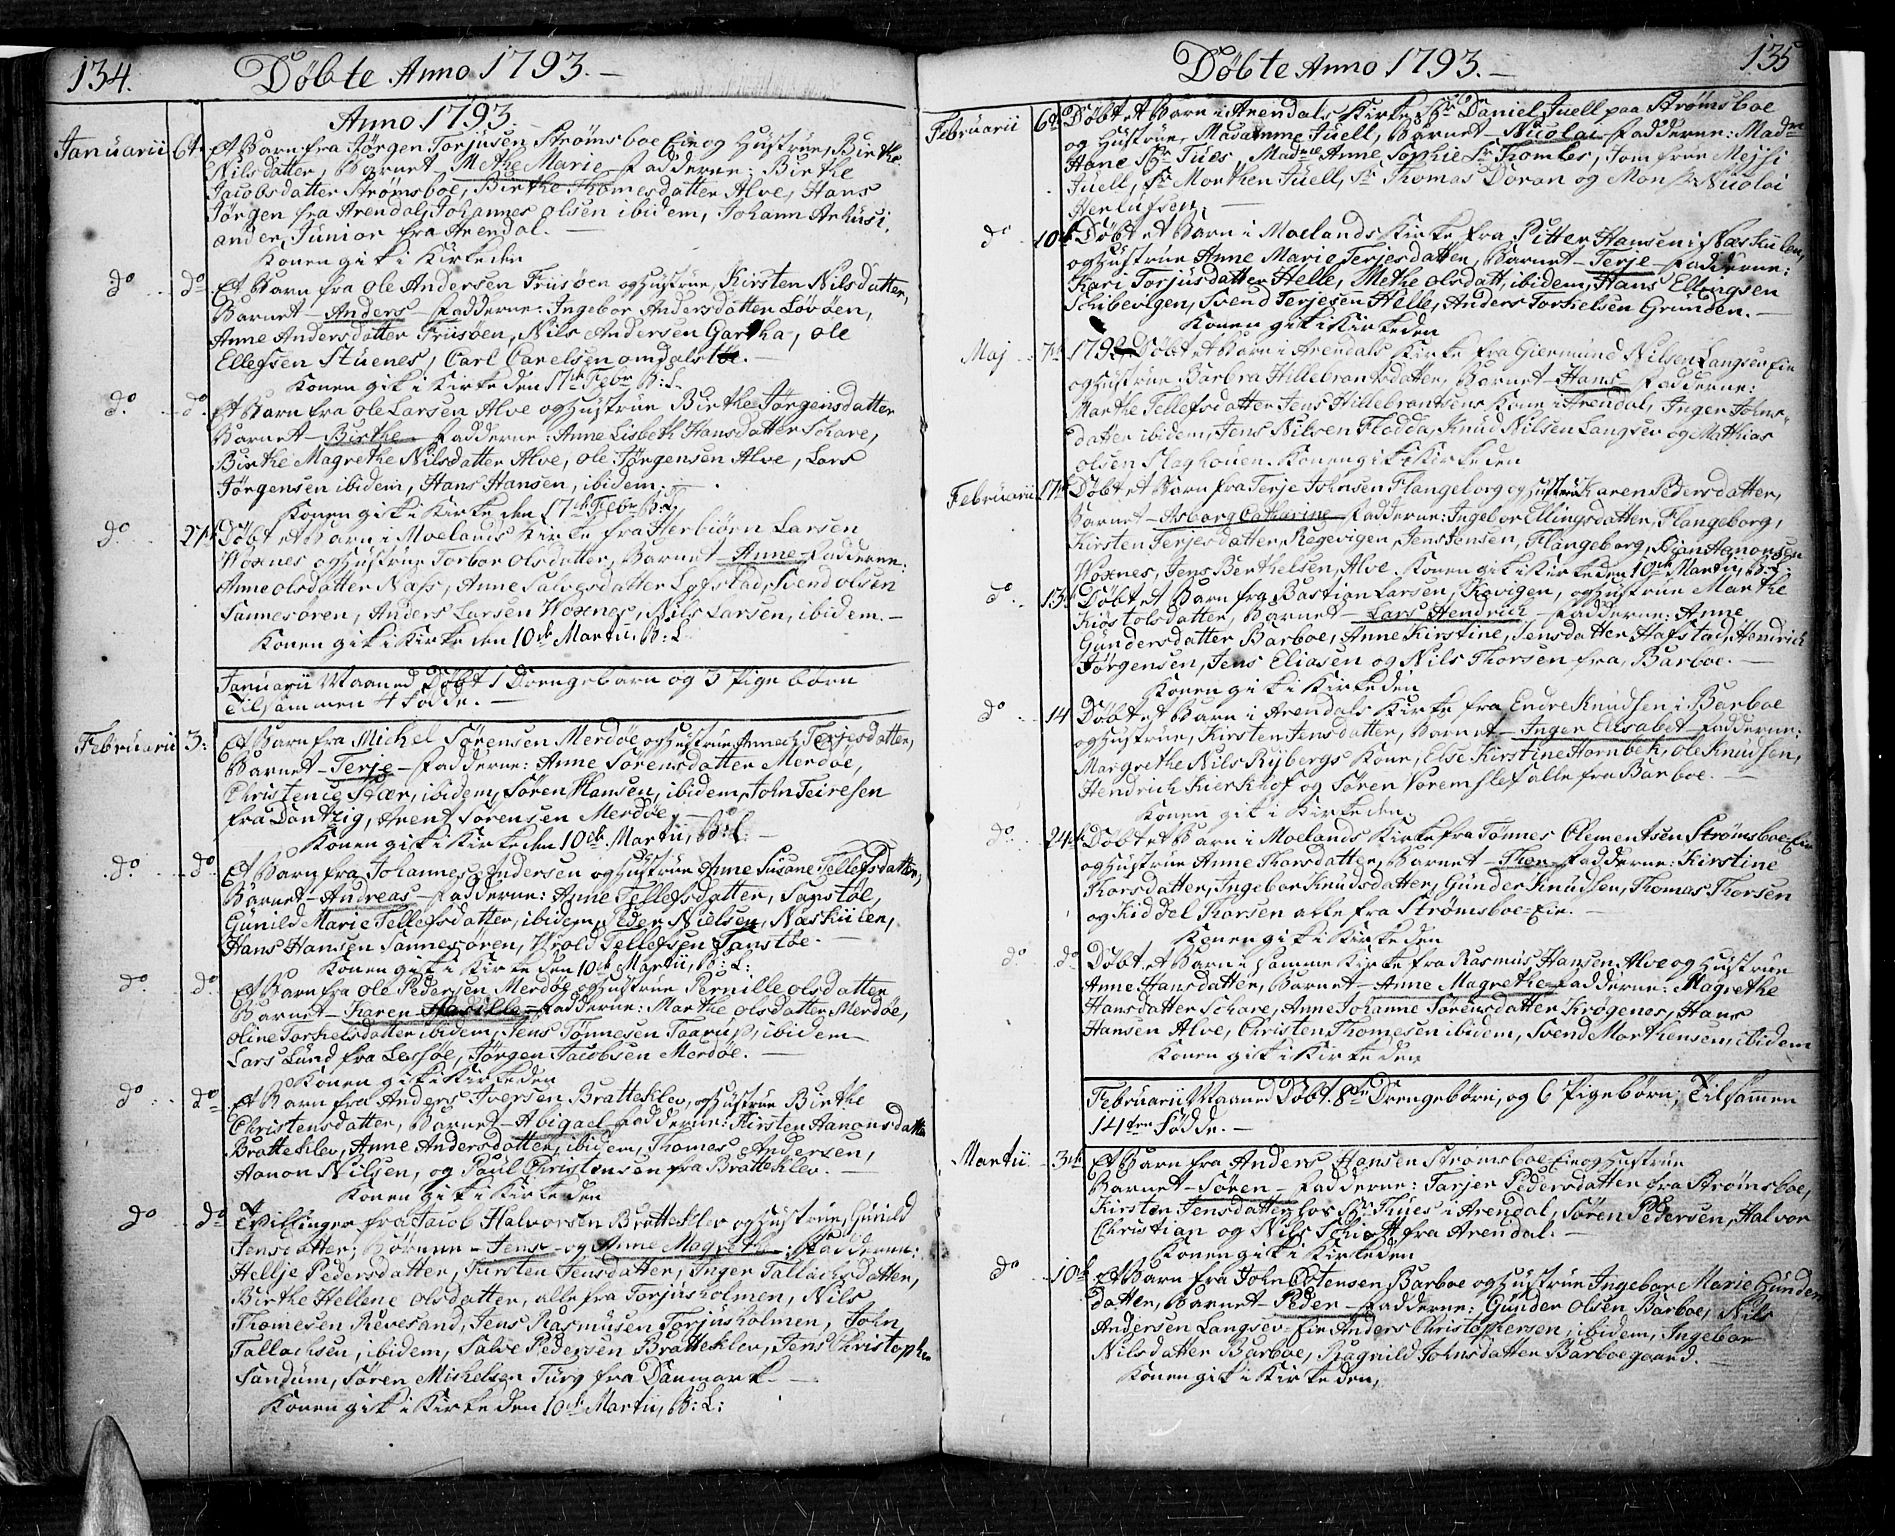 134.
Döbte Anno 1793.
Anno 1793.
Januarii 6te Et Barn fra Jörgen Torjusen Strömsboe Eie og Hustrue, Birthe
Nilsdatter, Barnet Methe Marie, Fadderne: Birthe
Jacobsdatter Strömsboe, Birthe Thomesdatter Alve, Hans
Jörgen fra Arendal, Johannes Olsen ibidem, Johann
ander, Junior fra Arendal.
Konen gik i Kirke den
do do Et Barn fra Ole Andersen Friisöen og Hustrue, Kirsten Nilsdatter,
Barnet - Anders - Fadderne: Ingebor Andersdatter Lövöen,
Anne Andersdatter Friisöen, Nils Andersen Gartha, Ole
Ellefsen Stuenes, Carl Carelsen omdalstöe.
Konen gik i Kirke den 17de Febr. B: L.
do. do. Et Barn fra Ole Larsen Alve og Hustrue Birthe Jörgensdatter
Barnet - Birthe - Fadderne: Anne Lisbeth Hansdatter Schare,
Birthe Magrethe Nilsdatter Alve, Ole Jörgensen Alve, Lars
Jörgensen ibidem, Hans Hansen, ibidem.
Konen gik i Kirke den 17de Febr. B: L.
do 27de Döbt et Barn i Moelands Kirke fra Herbiörn Larsen
Woxnes og Hustrue Torbor Olsdatter, Barnet - Anne - Fadderne:
Anne Olsdatter Næss, Anne Salvesdatter Lofstad, Svend Olsen
Sannesören, Anders Larsen Woxnes, Nils Larsen, ibidem.
Konen gik i Kirke den 10de Martii, B: L.
Januarii Maaned Döbt 1 Drengebarn og 3 Pige börn
Tilsammen 4 födde.
Februarii 3: Et Barn fra Michel Sörensen Merdöe og Hustrue Anne Terjesdatter,
Barnet - Terje - Fadderne: Anne Sörensdatter Merdöe,
Christence Skær, ibidem, Sören Hansen, ibidem, John Teiresen
fra Dantzig, Arent Sörensen Merdöe,
Konen gik i Kirke den 10de Martii, B: L:
do do Et Barn fra Johannes Andersen og Hustrue Anne Susane Tellefsdatter,
Barnet - Andreas - Fadderne: Anne Tellefsdatter, Sanstöe,
Gunild Marie Tellefsdatter, ibidem, Peder Nielsen, Næskiilen,
Hans Hansen Sannesören, Wrold Tellefsen Sanstöe.
Konen gik i Kirke den 10de Martii, B: L:
do do Et Barn fra Ole Pedersen Merdöe og Hustrue Pernille Olsdatter
Barnet - Karen - Fadderne: Marthe Olsdatter Merdöe,
Oline Torkelsdatter ibidem, Jens Tönnesen Taarup, ibidem
Lars Lund fra Lessöe, Jörgen Jacobsen Merdöe.
Konen gik i Kirke den
do do Et Barn fra Anders Iversen Bratteklev, og Hustrue Birthe
Christensdatter, Barnet - Abigael - Fadderne: Kirsten Aanonsdatter
Bratteklev, Anne Andersdatter, ibidem, Thomes Andersen,
Aanon Nilsen, og Poul Christensen fra Bratteklev.
Konen gik i Kirke den
do do Tvillinger fra Jacob Halvorsen Bratteklev og Hustrue, Gunild
Jensdatter; Börnene - Jens - og Anne Magrethe - Fadderne:
Hellje Pedersdatter, Kirsten Jensdatter, Inger Tallachsdatter,
Birthe Hellene Olsdatter, alle fra Torjusholmen, Nils
Thomesen Revesand, Jens Rasmusen Torjusholmen, John
Tallachsen, ibidem, Salve Pedersen Bratteklev, Jens Christopher
Sandum, Sören Michelsen Fury fra Danmark.
Konen gik i Kirke den 10de Martii, B: L:
Döbte Anno 1793.
135
Februarii 6te Döbt et Barn i Arendals Kirke, Sr. Daniel Juell paa Strömsboe
og Hustrue Madamme Juell, Barnet - Nicolai - Fadderne: Madme
Hane Sr. Tues, Madme Anne Sophie Sr. Thombes, Jomfrue
Juell, Sr. Morthen Juell, Sr. Thomas Doran og Monsr. Nicolai
Herlufsen.
do 10de Döbt et Barn i Moelands Kirke fra Pitter Hansen i Næskiilen,
og Hustrue Anne Marie Terjesdatter, Barnet - Terje - Fadderne:
Kari Torjusdatter Helle, Methe Olsdatt. ibidem, Hans Ellingsen
Schibevigen, Svend Terjesen Helle, Anders Torkelsen Grunden.
Konen gik i Kirke den
Maj 7de 1792 Döbt et Barn i Arendals Kirke fra Giermund Nilsen Langsev Eie
og Hustrue, Barbra Hillebrantsdatter, Barnet - Hans - Fadderne:
Marthe Tellefsdatter Jens Hillebrantsens Kone i Arendal, Inger Johns
datter ibidem, Jens Nilsen Flodda, Knud Nilsen Langsev og Mathias
Olsen Slaghouen. Konen gik i Kirke den
Februarii 17de Döbt et Barn fra Terje Johnsen Flangeborg og Hustrue Karen Pedersdatter,
Barnet - Asborg Cathrine - Fadderne: Ingebor Ellingsdatter, Flangeborg,
Kirsten Terjesdatter, Regevigen, Jens Jensen, Flangeborg, Aanonsen
Woxnes, Jens Berthelsen, Alve. Konen gik i Kirke den 10de Martii, B: L.
do. 13de Döbt et Barn fra Bastian Larsen, Havigen, og Hustrue Marthe
Kiöstolsdatter, Barnet - Lars Hendrich - Fadderne: Anne
Gundersdatter Barboe, Anne Kirstine, Jensdatter Hafstad, Hendrich
Jörgensen, Jens Eliasen og Nils Thorsen fra, Barboe.
Konen gik i Kirke den
do 14 Döbt et Barn i Arendals Kirke fra Endre Knudsen i Barboe
og Hustrue, Kirsten Jensdatter, Barnet - Inger Elisabet - Fadderne:
Margrethe Nils Rybergs Kone, Else Kirstine Hornbek, Ole Knudsen,
Hendrich Kierkhof og Sören Voremslef alle fra Barboe.
Konen gik i Kirke den
do 24de Döbt et Barn i Moelands Kirke fra Tönnes Clementsen Strömsboe Eie
og Hustrue Anne Thorsdatter, Barnet - Thor - Fadderne: Kirstine
Thorsdatter, Ingebor Knudsdatter, Gunder Knudsen, Thomas Thorsen
og Kiddel Thorsen alle fra Strömsboe-Eie.
Konen gik i Kirke den
do do Döbt et Barn i samme Kirke fra Rasmus Hansen Alve og Hustrue
Anne Hansdatter, Barnet - Anne Magrethe - Fadderne: Magrethe
Hansdatter Schare, Anne Johanne Sörensdatter Krögenes, Hans
Hansen Alve, Christen Thomesen ibidem, Svend Morthensen, ibidem
Konen gik i Kirke den
Februarii Maaned Döbt 8te Drengebörn, og 6 Pigebörn, Tilsammen
14ten födde.
Martii 3de Et Barn fra Anders Hansen Strömsboe Eie og Hustrue
Barnet - Sören - Fadderne: Tarjer Pedersdatter fra Strömsboe,
Kirsten Jensdatter hos Sr. Tues i Arendal, Sören Pedersen, Halvor
Christian og Nils Schiött fra Arendal.
Konen gik i Kirke den
do 10de Et Barn fra John Ostensen Barboe og Hustrue Ingebor Marie Gunders
datter, Barnet - Peder - Fadderne: Gunder Olsen Barboe, Nils
Andersen Langsev-Eie Anders Christophersen, ibidem, Ingebor
Nilsdatter Barboe, Ragnild Johnsdatter Barboegaard.
Konen gik i Kirke den,